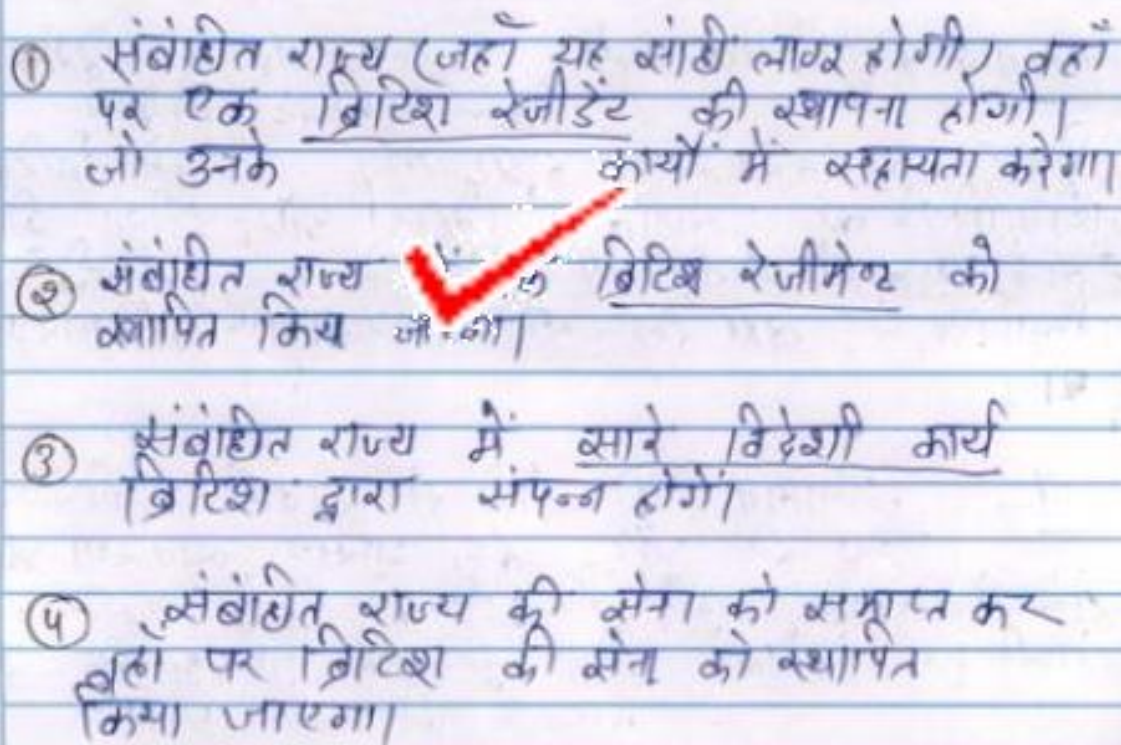 ① संबंधित राज्य (जहाँ यह संधी लागर होगी) वहाँ
पर एक ब्रिटिश रेजीडेंट की स्थापना होगी।
जो उनके कार्यों में सहायता करेगा।
② संबंधित राज्य ब्रिटिश रेजीमेण्ट को
स्थापित किय
③ संबंधित राज्य में सारे विदेशी कार्य
ब्रिटिश द्वारा संपन्न होगें।
④ संबंधित राज्य की सेना को समाप्त कर
वहाँ पर ब्रिटिश की सेना को स्थापित
किया जाएगा।